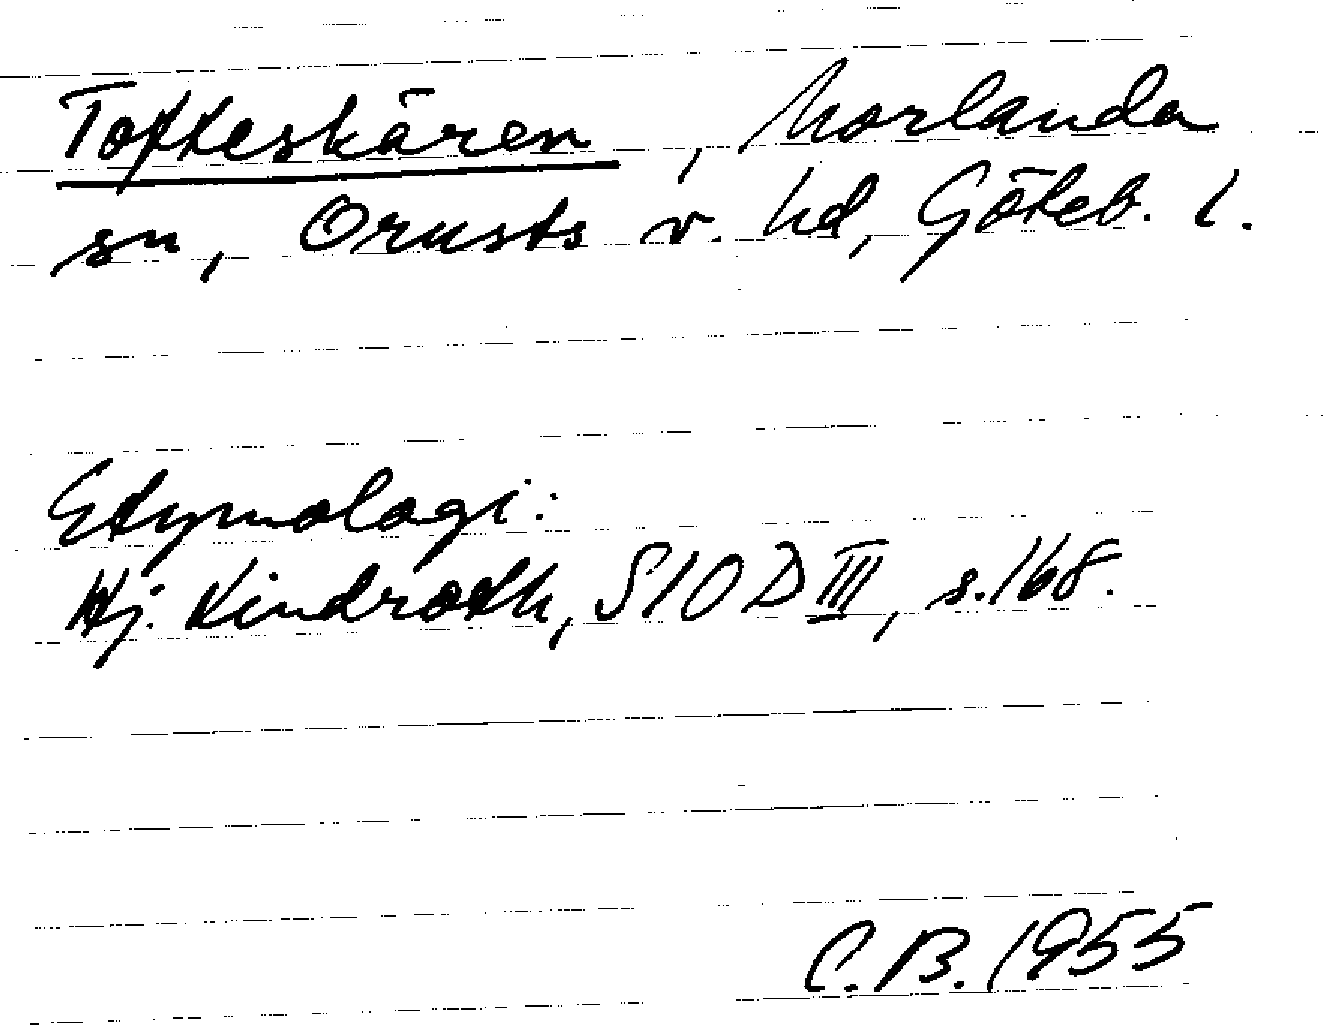 Tofteskären, Morlanda
sn, Orusts v. hd, Göteb. l.
Etymologi:
Hj. Lindroth, SIOD III, s. 168.
C.B. 1955